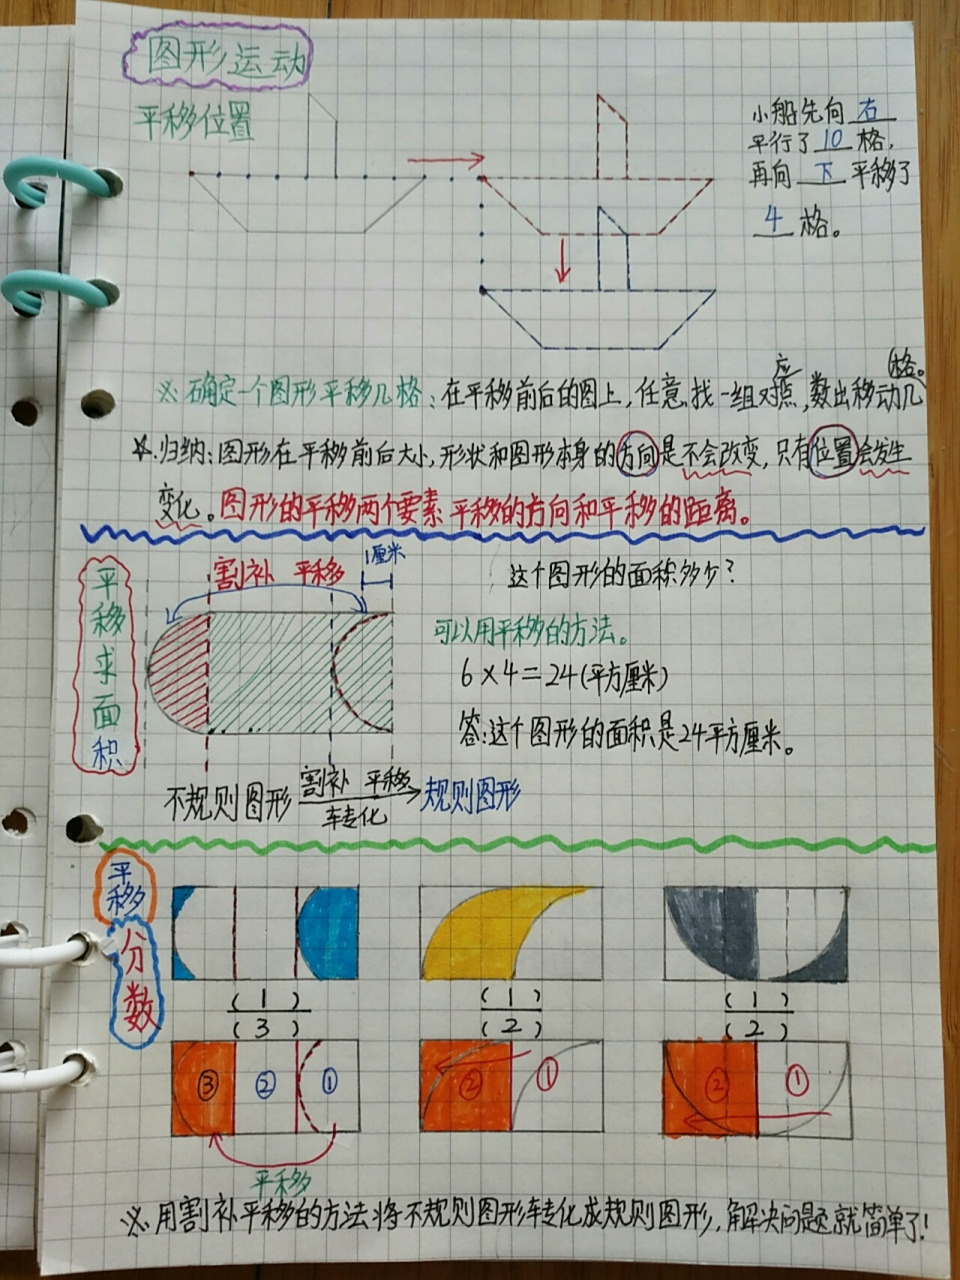 图形运动
平移位置
小船先向 右
平行了 10 格,
再向 下 平移了
4 格。
※确定一个图形平移几格:在平移前后的图上,任意找一组对应点,数出移动几格。
※归纳:图形在平移前后大小,形状和图形本身的方向是不会改变,只有位置会发生
变化。图形的平移两个要素 平移的方向和平移的距离。
平移求面积
割补 平移
1厘米
这个图形的面积多少?
可以用平移的方法。
6×4=24(平方厘米)
答:这个图形的面积是24平方厘米。
不规则图形 割补 平移 转化 规则图形
平移
分数
(1) (1) (1)
(3) (2) (2)
③ ② ① ② ① ② ①
平移
※用割补平移的方法将不规则图形转化成规则图形,解决问题就简单了!